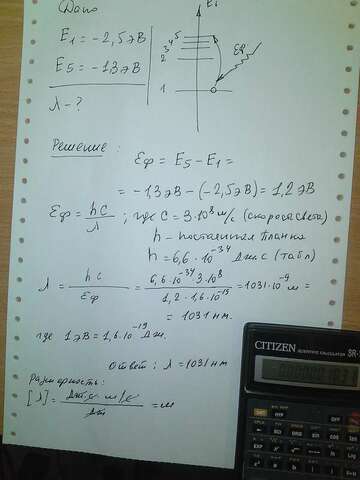 Дано
E₁ = -2,5эВ
E₅ = -1,3эВ
λ - ?
E₁
5
4
3
2
1
Eф
Решение:
Eф = E₅ - E₁ =
= -1,3эВ - (-2,5эВ) = 1,2эВ
Eф = hc/λ ; где C = 3·10⁸ м/с (скорость света)
h - постоянная Планка
h = 6,6·10⁻³⁴ Дж·с (табл)
λ = hc/Eф = 6,6·10⁻³⁴·3·10⁸/1,2·1,6·10⁻¹⁹ = 1031·10⁻⁹ м =
= 1031 нм.
где 1эВ = 1,6·10⁻¹⁹ Дж.
Ответ: λ = 1031 нм
Размерность:
[λ] = Дж·с·м/с/Дж = м
CITIZEN
SCIENTIFIC CALCULATOR SR-